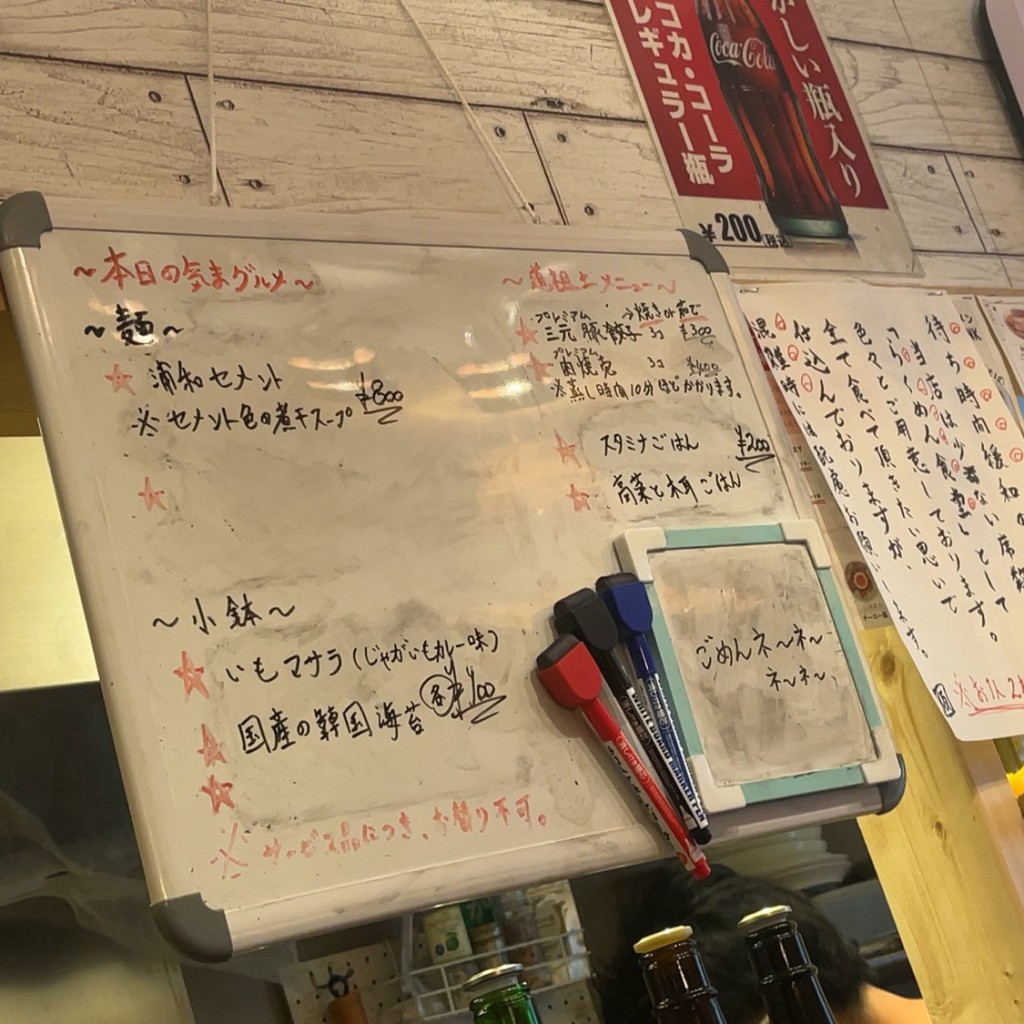 〜本日の気まグルメ〜
〜麺〜
浦和セメント
※セメント色の煮干スープ ¥800
〜小鉢〜
いもマサラ(じゃがいもカレー味)
国産の韓国海苔 各¥100
※サービス品につき、お替り不可。
メニュー〜
プレミアム →焼きor茹で
三元豚餃子 3コ ¥300
プレミアム
肉焼売 3コ ¥400
※蒸し時間10分ほどかかります。
スタミナごはん ¥200
高菜と木耳ごはん
ごめんネ〜ネ〜
ネ〜ネ〜、
かしい瓶入り
コカ・コーラ
レギュラー瓶
Coca-Cola
¥200(税込)
待ち時間緩和の席
当店は少ない
らくめん食堂として
色々とご用意しております。
全て食べて頂きたい思いで
仕込んでおりますが、
混雑時には
WHITE BOARD MARKER PEN